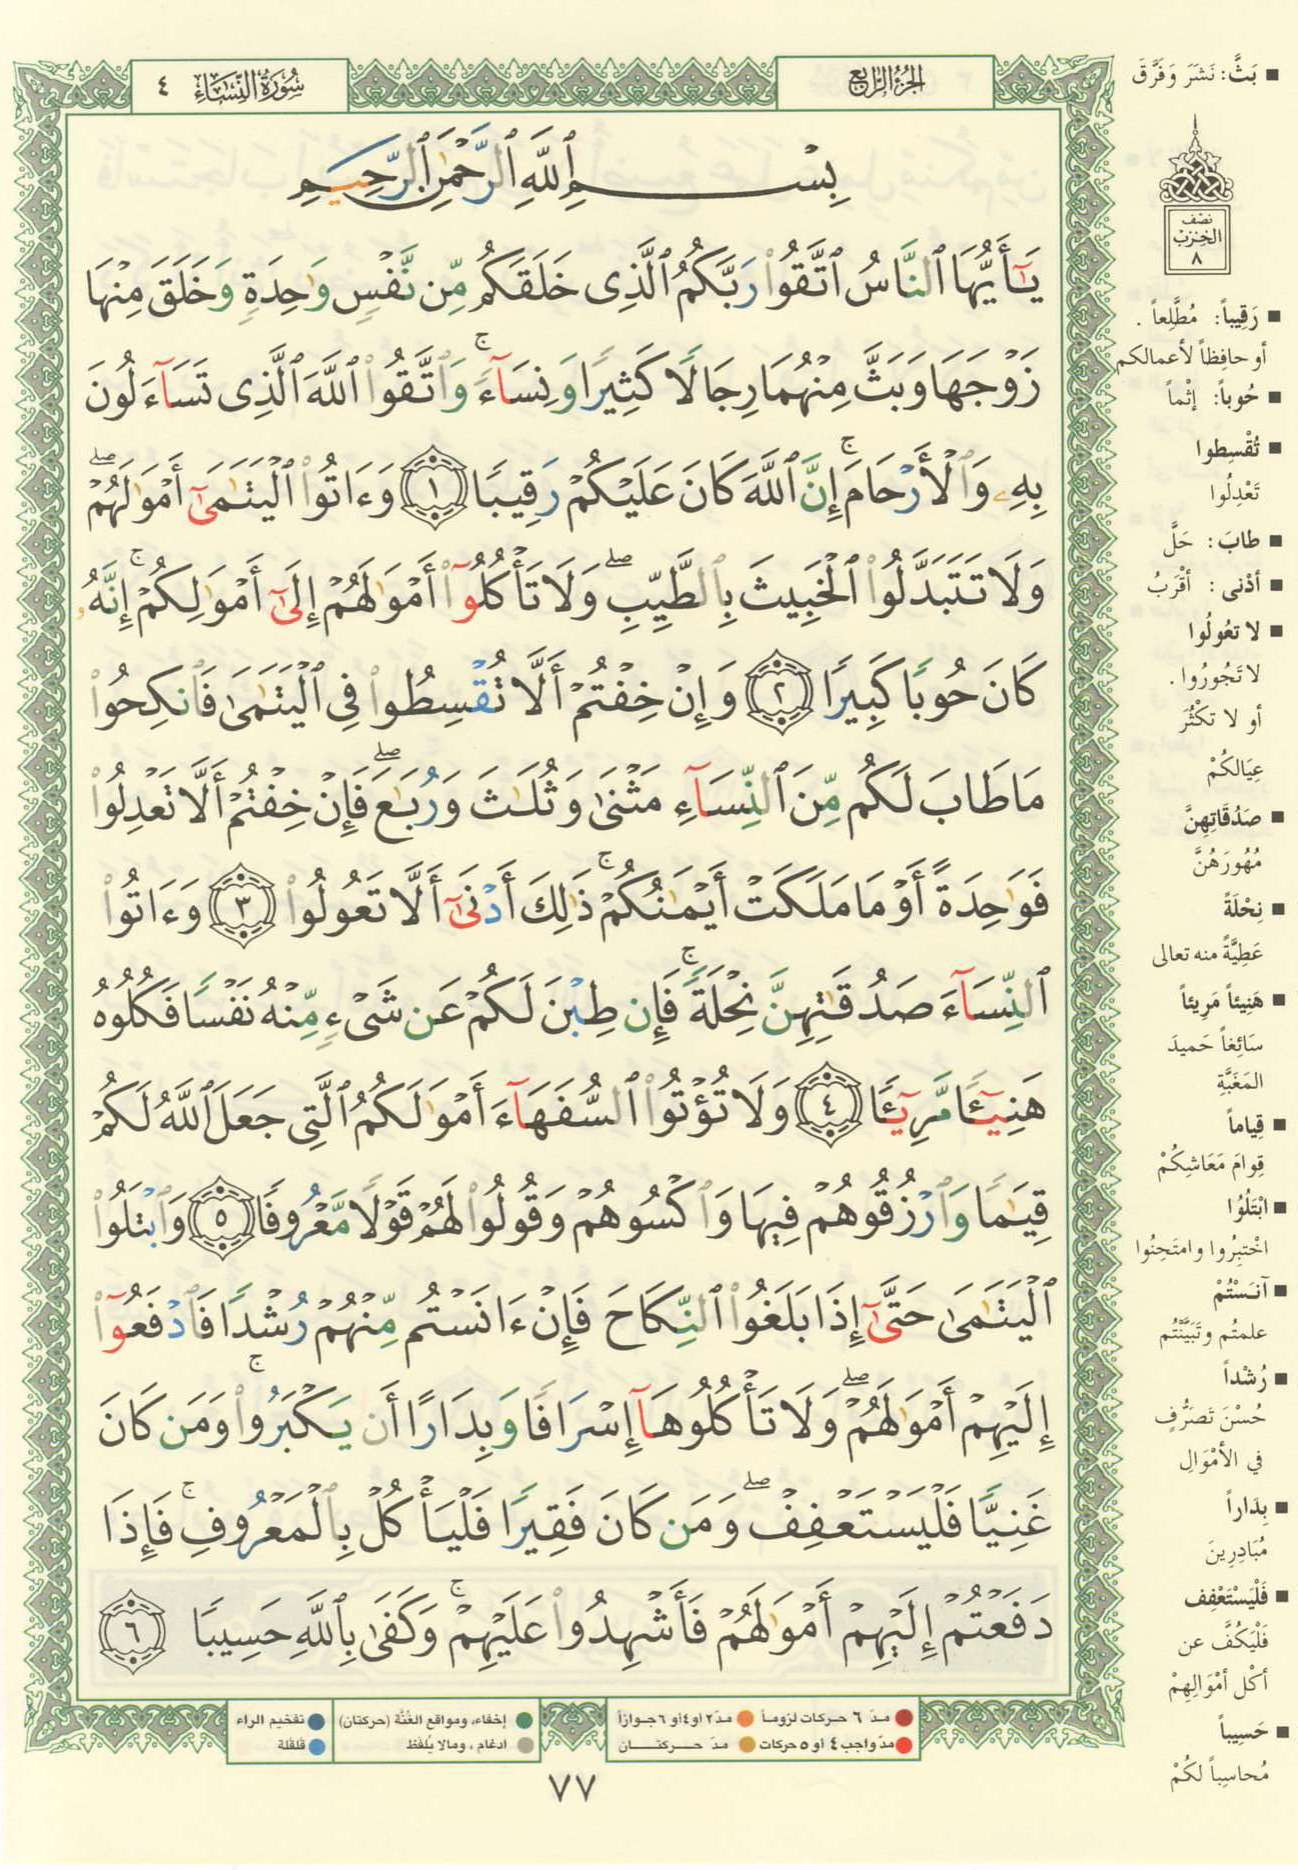 سُورَةُ النِّسَاءِ ٤
الجُزْءُ الرَّابِعُ
بِسْمِ ٱللَّهِ ٱلرَّحْمَٰنِ ٱلرَّحِيمِ
يَٰٓأَيُّهَا ٱلنَّاسُ ٱتَّقُوا۟ رَبَّكُمُ ٱلَّذِى خَلَقَكُم مِّن نَّفْسٍ وَٰحِدَةٍ وَخَلَقَ مِنْهَا
زَوْجَهَا وَبَثَّ مِنْهُمَا رِجَالًا كَثِيرًا وَنِسَآءً ۚ وَٱتَّقُوا۟ ٱللَّهَ ٱلَّذِى تَسَآءَلُونَ
بِهِۦ وَٱلْأَرْحَامَ ۚ إِنَّ ٱللَّهَ كَانَ عَلَيْكُمْ رَقِيبًا ١ وَءَاتُوا۟ ٱلْيَتَٰمَىٰٓ أَمْوَٰلَهُمْ ۖ
وَلَا تَتَبَدَّلُوا۟ ٱلْخَبِيثَ بِٱلطَّيِّبِ ۖ وَلَا تَأْكُلُوٓا۟ أَمْوَٰلَهُمْ إِلَىٰٓ أَمْوَٰلِكُمْ ۚ إِنَّهُۥ
كَانَ حُوبًا كَبِيرًا ٢ وَإِنْ خِفْتُمْ أَلَّا تُقْسِطُوا۟ فِى ٱلْيَتَٰمَىٰ فَٱنكِحُوا۟
مَا طَابَ لَكُم مِّنَ ٱلنِّسَآءِ مَثْنَىٰ وَثُلَٰثَ وَرُبَٰعَ ۖ فَإِنْ خِفْتُمْ أَلَّا تَعْدِلُوا۟
فَوَٰحِدَةً أَوْ مَا مَلَكَتْ أَيْمَٰنُكُمْ ۚ ذَٰلِكَ أَدْنَىٰٓ أَلَّا تَعُولُوا۟ ٣ وَءَاتُوا۟
ٱلنِّسَآءَ صَدُقَٰتِهِنَّ نِحْلَةً ۚ فَإِن طِبْنَ لَكُمْ عَن شَىْءٍ مِّنْهُ نَفْسًا فَكُلُوهُ
هَنِيٓـًٔا مَّرِيٓـًٔا ٤ وَلَا تُؤْتُوا۟ ٱلسُّفَهَآءَ أَمْوَٰلَكُمُ ٱلَّتِى جَعَلَ ٱللَّهُ لَكُمْ
قِيَٰمًا وَٱرْزُقُوهُمْ فِيهَا وَٱكْسُوهُمْ وَقُولُوا۟ لَهُمْ قَوْلًا مَّعْرُوفًا ٥ وَٱبْتَلُوا۟
ٱلْيَتَٰمَىٰ حَتَّىٰٓ إِذَا بَلَغُوا۟ ٱلنِّكَاحَ فَإِنْ ءَانَسْتُم مِّنْهُمْ رُشْدًا فَٱدْفَعُوٓا۟
إِلَيْهِمْ أَمْوَٰلَهُمْ ۖ وَلَا تَأْكُلُوهَآ إِسْرَافًا وَبِدَارًا أَن يَكْبَرُوا۟ ۚ وَمَن كَانَ
غَنِيًّا فَلْيَسْتَعْفِفْ ۖ وَمَن كَانَ فَقِيرًا فَلْيَأْكُلْ بِٱلْمَعْرُوفِ ۚ فَإِذَا
دَفَعْتُمْ إِلَيْهِمْ أَمْوَٰلَهُمْ فَأَشْهِدُوا۟ عَلَيْهِمْ ۚ وَكَفَىٰ بِٱللَّهِ حَسِيبًا ٦
■ بَثَّ: نَشَرَ وَفَرَّقَ
نصْف
الحِزب
٨
■ رَقِيباً: مُطَّلِعاً.
أو حافِظاً لأعمالكم
■ حُوباً: إثْماً
■ تُقْسِطوا
تَعْدِلُوا
■ طابَ: حَلَّ
■ أدْنى: أقْرَبُ
■ لا تعُولُوا
لا تَجُورُوا.
أو لا تكْثُرَ
عِيَالكُمْ
■ صَدُقَاتِهِنَّ
مُهُورَهُنَّ
■ نِحْلَةً
عَطِيَّةً منه تعالى
■ هَنِيئاً مَرِيئاً
سَائِغاً حَميدَ
المَغَبَّةِ
■ قِياماً
قِوامَ مَعَاشِكُمْ
■ ابْتَلُوُا
اخْتبِرُوا وامتَحِنُوا
■ آنَسْتُمْ
علمتُم وتَبَيَّنْتُم
■ رُشْداً
حُسْنَ تَصَرُّفٍ
في الأمْوَالِ
■ بِدَاراً
مُبَادِرِينَ
■ فَلْيَسْتَعْفِف
فَلْيَكُفَّ عن
أكْل أمْوَالِهِمْ
■ حَسِيباً
مُحاسِباً لكُمْ
مدّ ٦ حركات لزوماً مدّ٢ أو٤أو ٦جوازاً
مدّ واجب ٤ أو ٥ حركات مدّ حركتان
إخفاء، ومواقع الغُنَّة (حركتان) تفخيم الراء
ادغام، ومالا يُلفظ قلقلة
٧٧